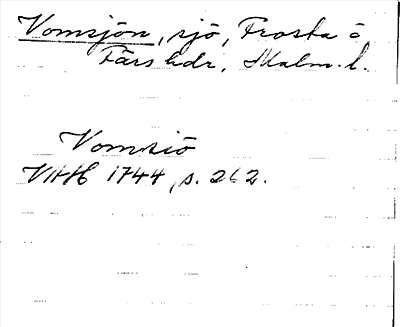 Vomsjön, sjö, Frosta o
Färs hdr, Malm. l.
Vomsiö
VAH 1744, s. 262.